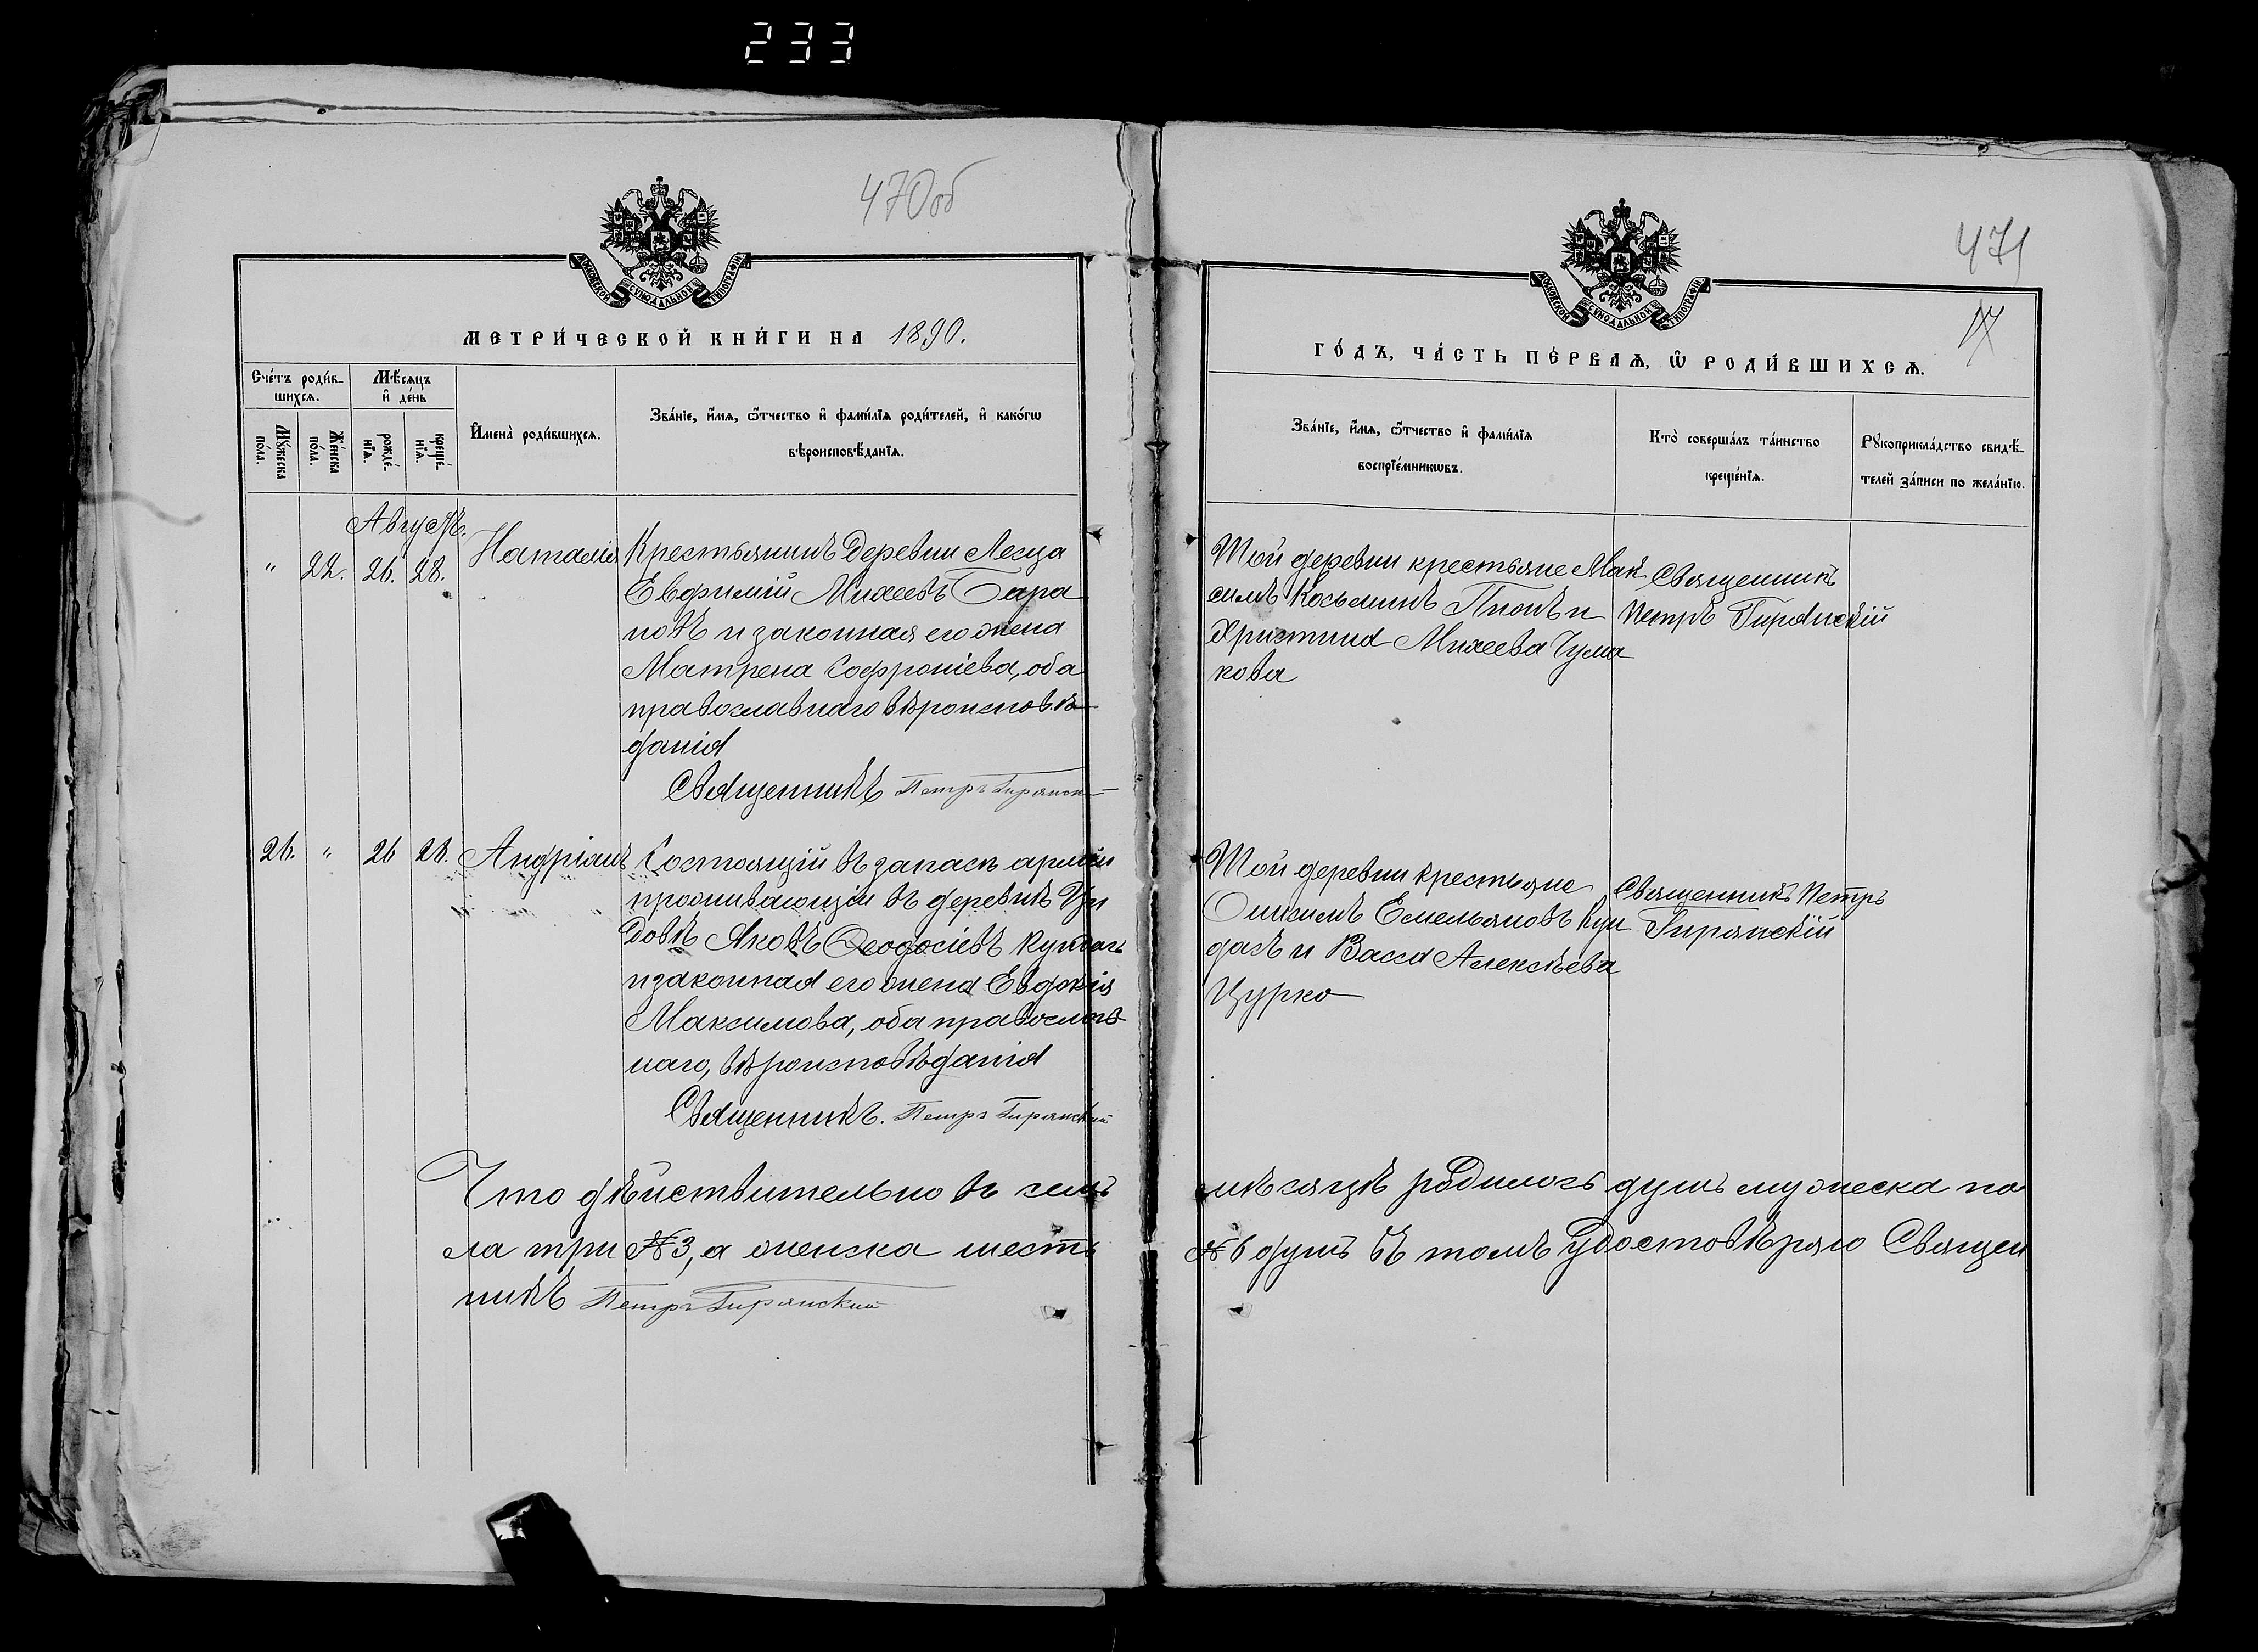 233
470об
МОСКОВСКОЙ СУНОДАЛЬНОЙ ТИПОГРАФІИ
МЕТРИ́ЧЕСКОЙ КНИ́ГИ НА 1890.
Сче́тъ роди́в-
шихсѧ.
Мѣ́сяцъ
и҆ де́нь
Мꙋ́жеска
по́ла.
Же́нска
по́ла.
рожде́-
нїѧ.
креще́-
нїѧ.
И҆мена̀ роди́вшихсѧ.
Зва́нїе, и҆́мѧ, ѻ҆́тчество и҆ фами́лїѧ роди́телей, и҆ како́гѡ
вѣроисповѣ́данїѧ.
Августъ.
" 22. 26. 28. Наталія
Крестьянинъ Деревни Лесца
Евфимій Михеевъ Бара
новъ и законная его жена
Матрена Софроніева, оба
православнаго вѣроисповѣ-
данія
Священникъ Петръ Гирянск
26. " 26 28. Андріанъ
Состоящій въ запасѣ арміи
проживающій въ деревнѣ
Яковъ Ѳеодосіевъ
и законная его жена Евдокія
Максимова, оба православ
наго, вѣроисповѣданія
Священникъ. Петръ Гирянскій
Что дѣйствительно въ семъ
ла три №3, а женска шесть
никъ Петръ Гирянскій
471
17
МОСКОВСКОЙ СУНОДАЛЬНОЙ ТИПОГРАФІИ
ГО́ДЪ, ЧА́СТЬ ПЕ́РВАѦ, Ѽ РОДИ́ВШИХСѦ.
Зва́нїе, и҆́мѧ, ѻ҆́тчество и҆ фами́лїѧ
воспрїе́мникѡвъ.
Кто̀ соверша́лъ та́инство
креще́нїѧ.
Рꙋкоприкла́дство свидѣ́-
телей за́писи по жела́нїю.
Той деревни крестьяне Мак
симъ Косьминъ и
Христина Михеева Чума
кова
Священникъ
Петръ Гирянскій
Той деревни крестьяне
Онисимъ Емельяновъ Кун
дасъ и Васса Алексѣева
Цурко
Священникъ Петръ
Гирянскій
мѣсяцѣ родилось душъ мужеска по
№ 6 душъ въ томъ удостовѣряю Священ